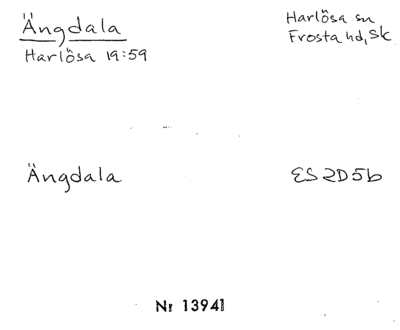 Ängdala
Harlösa 19:59
Harlösa sn
Frosta hd, Sk
Ängdala
ES 2D5b
Nr 13941